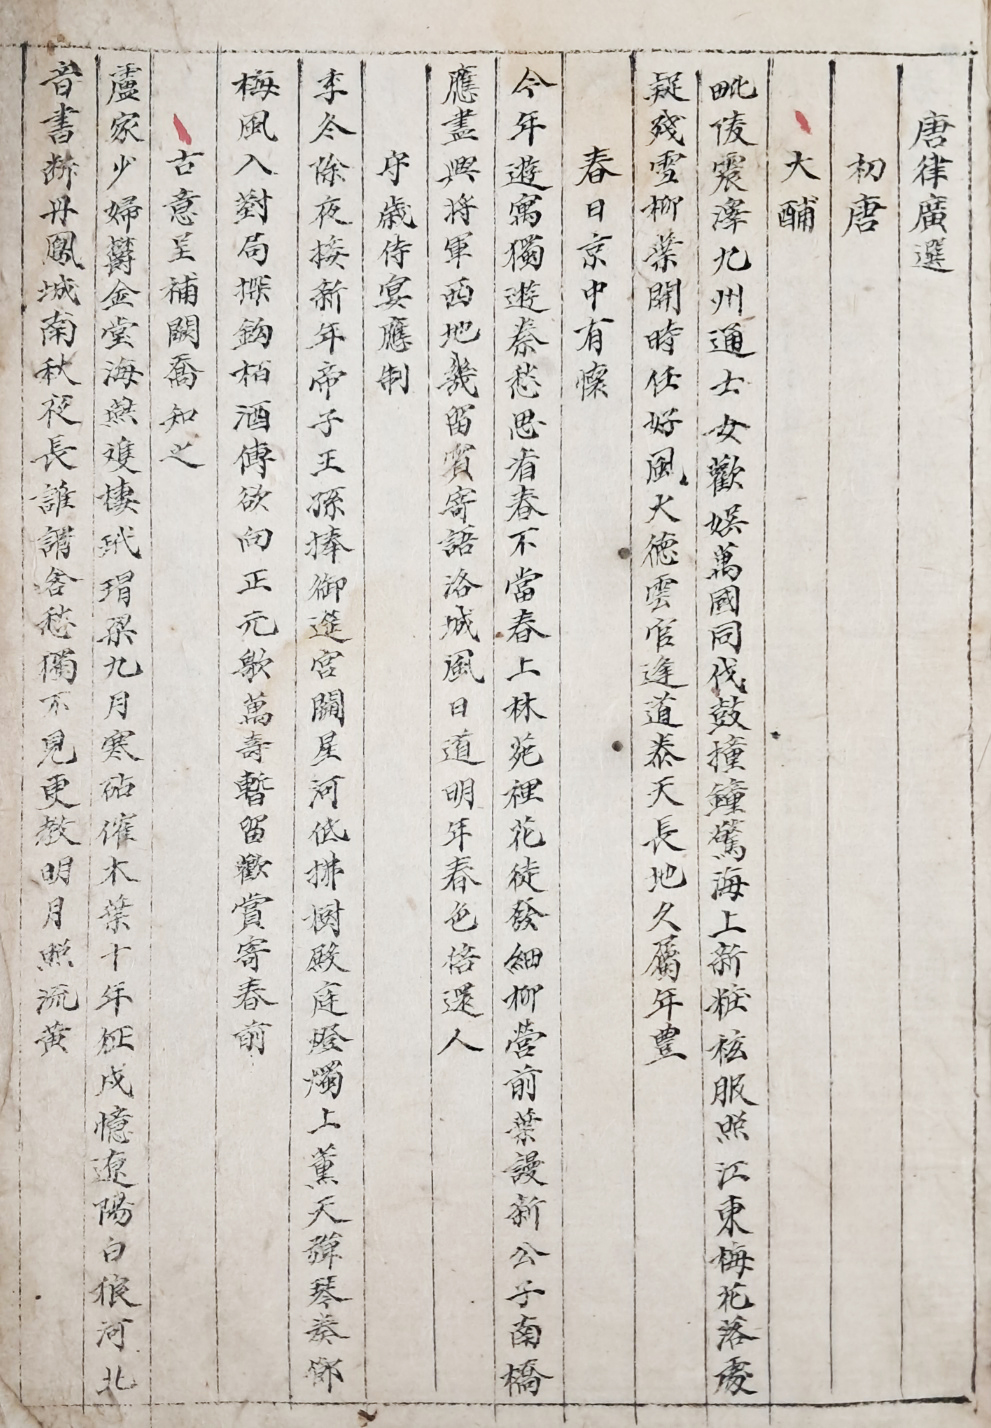 唐律廣選
初唐
大酺
毗陵震澤九州通士女歡娛萬國同伐鼓撞鐘驚海上新粧袨服照江東梅花落處
疑殘雪柳葉開時任好風大德雲官逢道泰天長地久屬年豊
春日京中有懷
今年遊寓獨遊秦愁思看春不當春上林苑裡花徒發細柳營前葉謾新公子南橋
應盡興將軍西地幾留賓寄語洛城風日道明年春色倍還人
守歲侍宴應制
季冬除夜接新年帝子王孫捧御筵宮闕星河低拂樹殿庭燈燭上薰天彈琴奏鄉
梅風入對局探鈎栢酒傳欲向正元歌萬壽暫留歡賞寄春前
古意呈補闕喬知之
盧家少婦欝金堂海燕雙棲玳瑁梁九月寒砧催木葉十年征戍憶遼陽白狼河北
音書断丹鳳城南秋夜長誰謂含愁獨不見更教明月照流黄